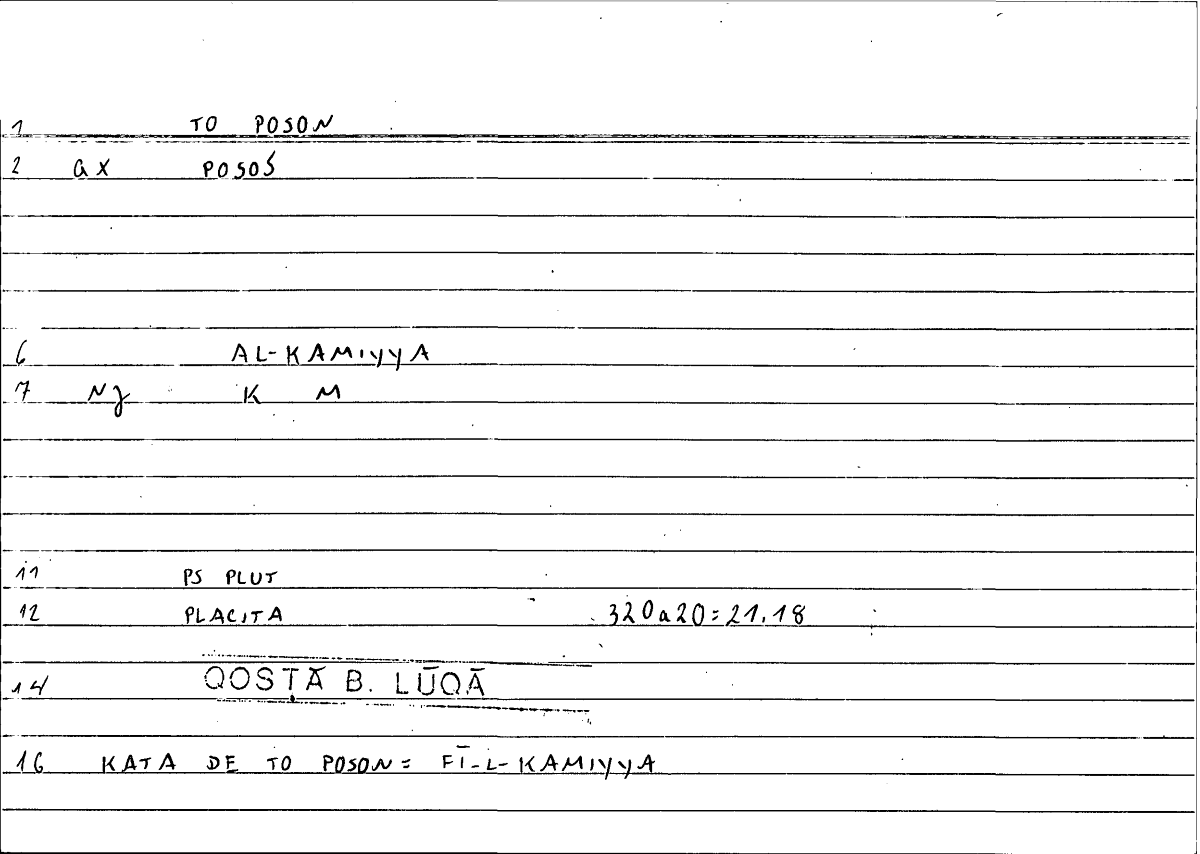 1 TO POSON
2 GX POSOS
6 AL-KAMIYYA
7 NJ K M
11 PS PLUT
12 PLACITA 320a20=21.18
14 QOSṬĀ B. LŪQĀ
16 KATA DE TO POSON= FĪ-L-KAMIYYA